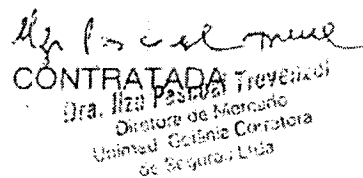 CONTRATADA
Dra. Ilza Pascoal Trevenzol
Diretora de Mercado
Unimed Goiânia Corretora
de Seguros Ltda